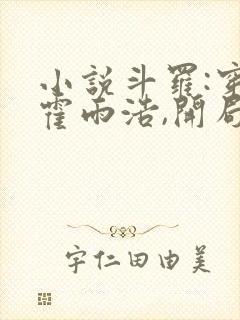 小説斗羅:穿
霍雨浩,開局
宇仁田由美